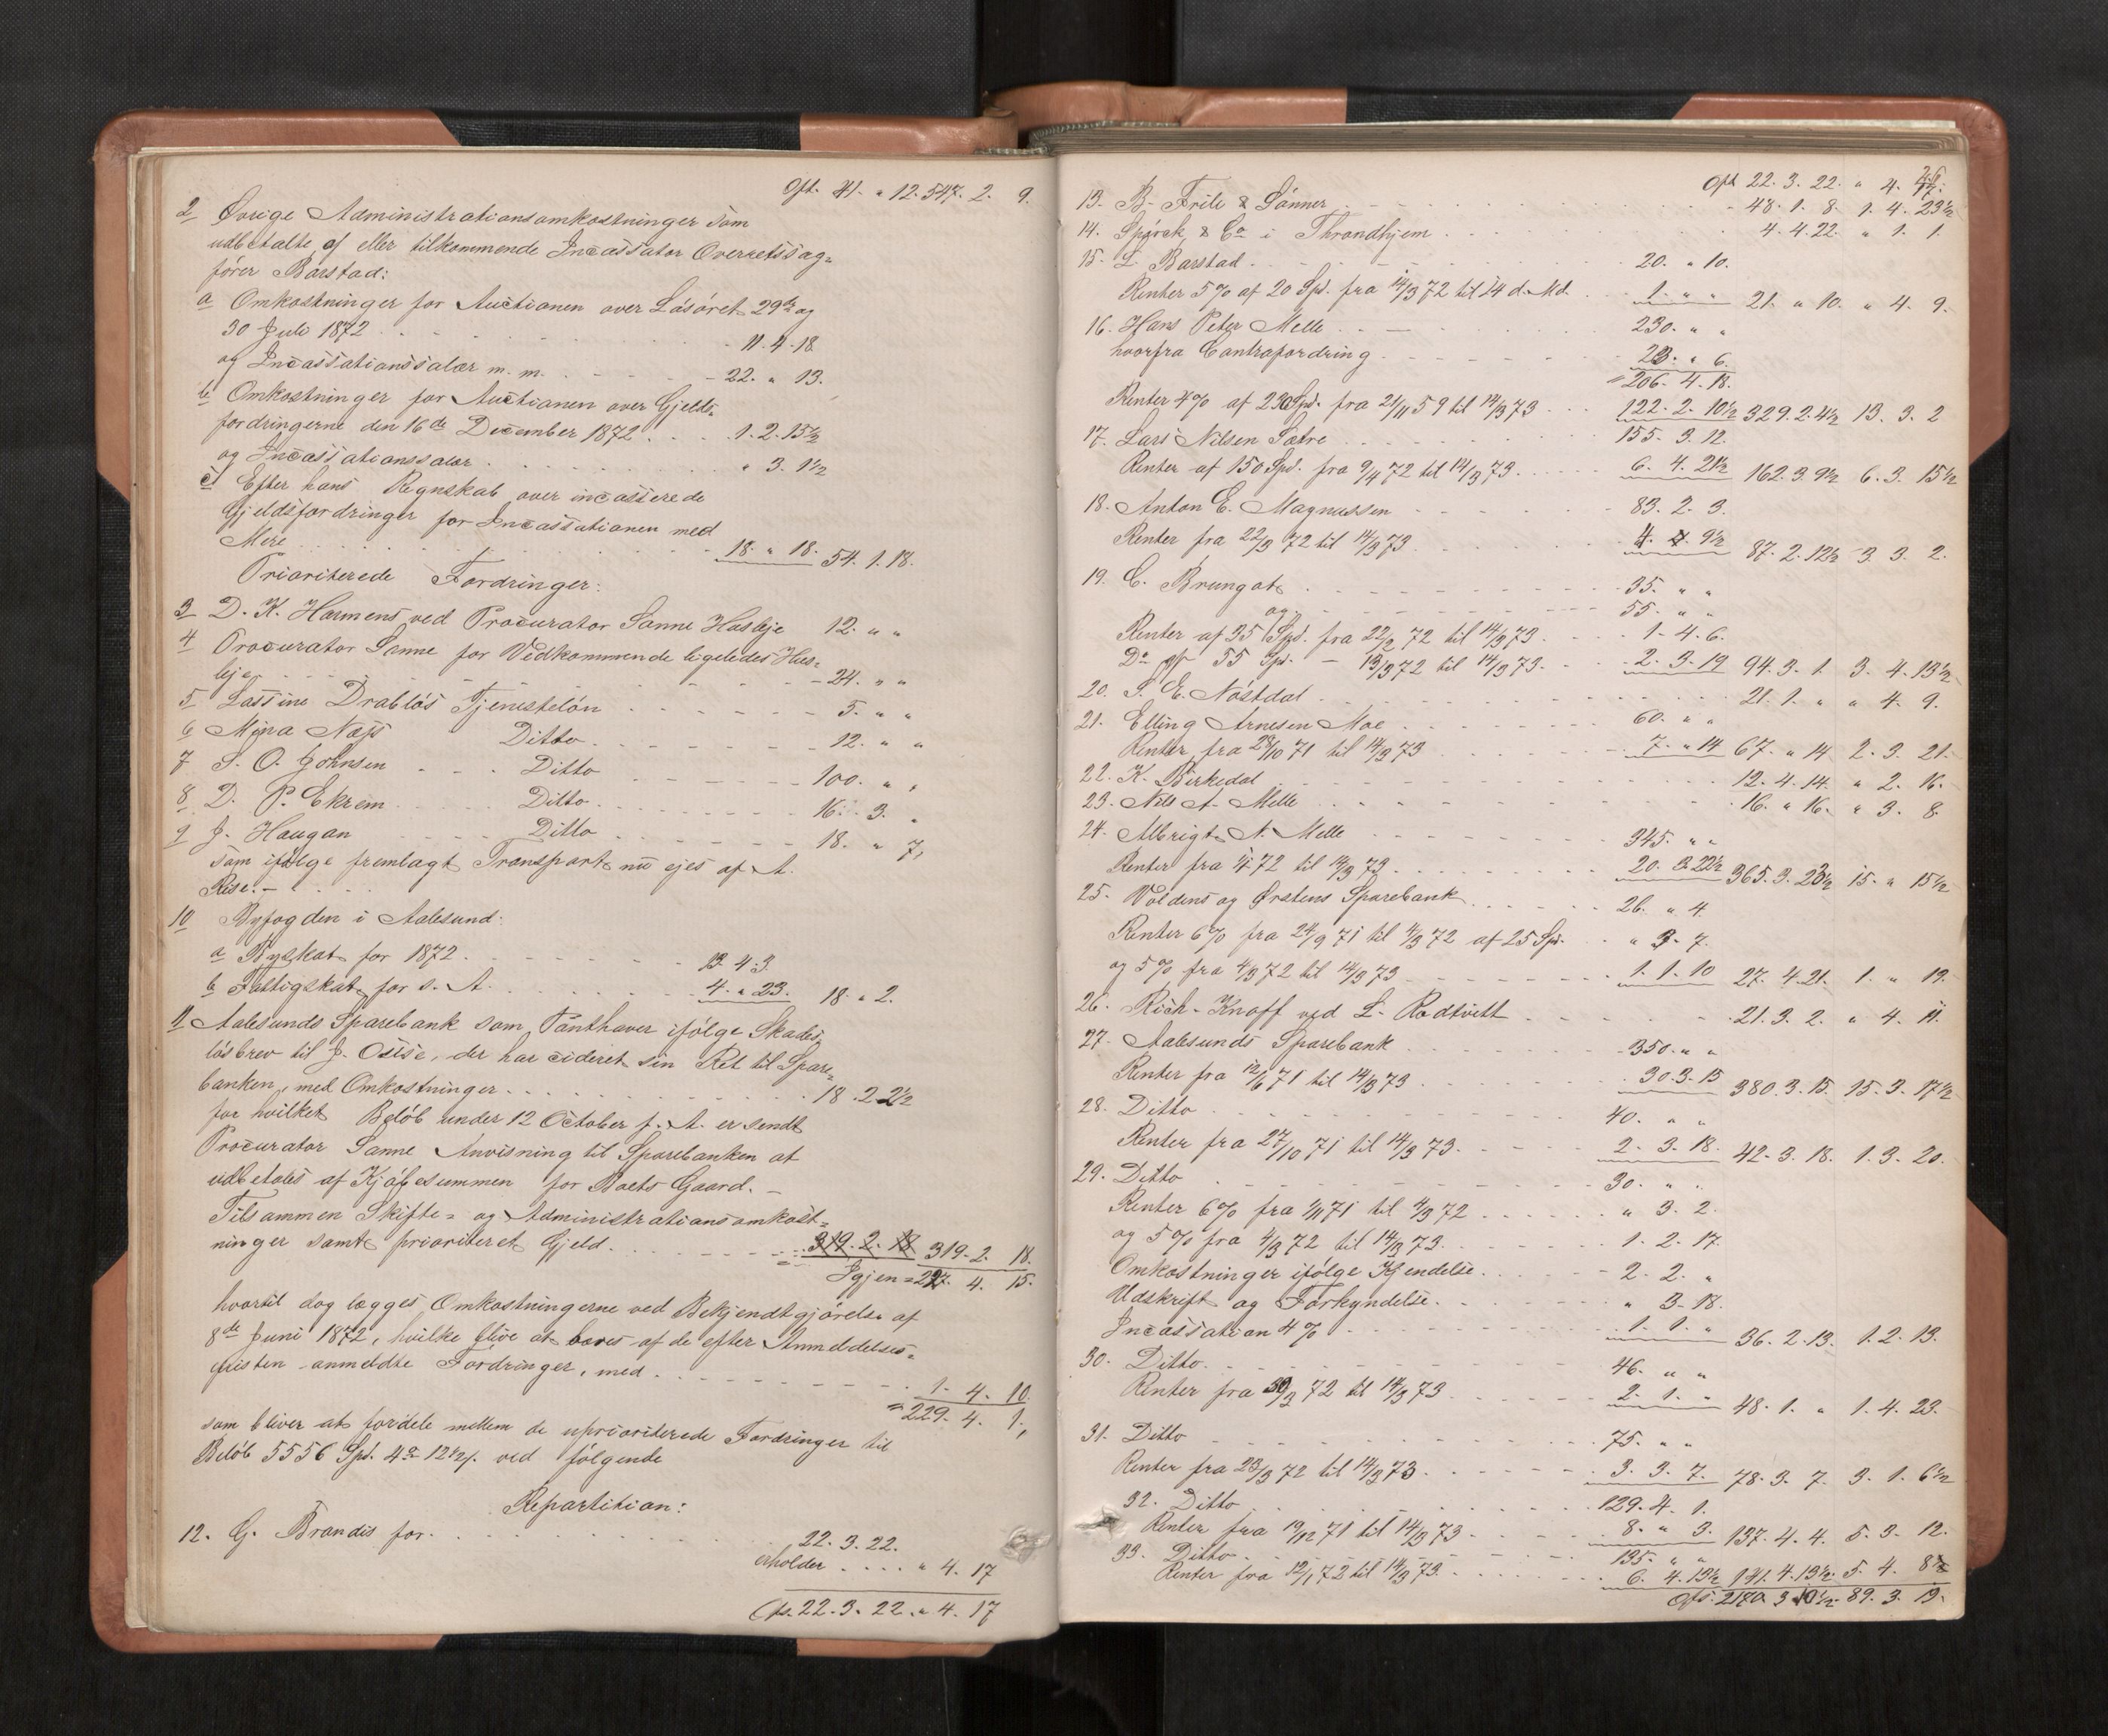 Oft. 41. " 12. 547. 2. 9.
2 Øvrige Administrationsomkostninger som
udbetalte af eller tilkommende Incassator Overretssag-
fører Barstad:
a Omkostninger for Auctionen over Løsøret 29de og
30 Juli 1872 . . . 11. 4. 18
og Incassationssalær m. m. . . . 22. " 13.
b Omkostninger for Auctionen over Gjelds-
fordringerne den 16de December 1872 . . . 1. 2. 15½
og Incassationssalær . . . " 3. 1½
c Efter hans Regnskab over incasserede
Gjeldsfordringer for Incassationen med
Mere . . . 18. " 18. 54. 1. 18.
Prioriterede Fordringer:
3 D. K. Harmens ved Procurator Sanne Husleje 12. " "
4 Procurator Sanne for Vedkommende ligeledes Hus-
leje . . . 24. " "
5 Lassine Drabløs Tjenesteløn . . . 5. " "
6 Mina Næss Ditto . . . 12. " "
7 S. O. Johnsen . . . Ditto . . . 100. " "
8 D. P. Ekrem . . . Ditto . . . 16. 3. "
9 J. Haugan . . . Ditto . . . 18. " 7,
som ifølge fremlagt Transport nu ejes af A.
Rise. –
10 Byfogden i Aalesund:
a Byskat for 1872 . . . 13. 4. 3.
b Fattigskat for s. A. . . . 4. " 23. 18. " 2.
11 Aalesunds Sparebank som Panthaver ifølge Skades-
løsbrev til J. Osise, der har cideret sin Ret til Spare-
banken, med Omkostninger . . . 18. 2. 2½
for hvilket Beløb under 12 October f. A. er sendt
Procurator Sanne Anvisning til Sparebanken at
udbetales af Kjøbesummen for Boets Gaard. –
Tilsammen Skifte- og Administrationsomkost-
ninger samt prioriteret Gjeld . . . 319. 2. 18 319. 2. 18.
Igjen = 227. 4. 15.
hvortil dog lægges Omkostningerne ved Bekjendtgjørelse af
8de Juni 1872, hvilke blive at bæres af de efter Anmeldelses-
fristen anmeldte Fordringer, med . . . 1. 4. 10
= 229. 4. 1,
som bliver at fordele mellem de uprioriterede Fordringer til
Beløb 5556 Spd. 4 12½ ved følgende
Repartition:
12. G. Brandis for . . . 22. 3. 22.
erholder . . . " 4. 17
Ofs. 22. 3. 22. " 4. 17
Oft 22. 3. 22. " 4. 17.
13. B. Friele & Sønner . . . 48. 1. 8. 1. 4. 23½
14. Spørck & Co i Throndhjem . . . 4. 4. 22. " 1. 1.
15. L. Barstad . . . 20. " 10.
Renter 5% af 20 Spd. fra 14/3 72 til 14 d. Md. . . 1. " " 21. " 10. " 4. 9.
16. Hans Peter Melle . . . 230. " "
hvorfra Contrafordring . . . 23. " 6.
= 206. 4. 18.
Renter 4% af 230 Spd. fra 21/11 59 til 14/3 73 . . . 122. 2. 10½ 329. 2. 4½ 13. 3. 2
17. Lars Nilsen Sætre . . . 155. 3. 12.
Renter af 150 Spd. fra 9/4 72 til 14/3 73. . . . 6. 4. 21½ 162. 3. 9½ 6. 3. 15½
18. Anton E. Magnussen . . . 83. 2. 3.
Renter fra 22/3 72 til 14/3 73 . . . 4. " 9½ 87. 2. 12½ 3. 3. 2.
19. C. Brungot . . . 35. " "
og . . . 55. " "
Renter af 35 Spd. fra 22/2 72 til 14/3 73. . . . 1. 4. 6.
Do af 55 Spd. – 13/3 72 til 14/3 73. . . . 2. 3. 19 94. 3. 1. 3. 4. 13½
20. S. E. Nøstdal . . . 21. 1. " " 4. 9.
21. Elling Arnesen Moe . . . 60. " "
Renter fra 28/10 71 til 14/3 73 . . . 7. " 14 67. " 14 2. 3. 21.
22. K. Birkedal . . . 12. 4. 14. " 2. 16.
23. Nils A. Melle . . . 16. " 16. " 3. 8.
24. Albrigt A. Melle . . . 345. " "
Renter fra 1/4 72 til 14/3 73 . . . 20. 3. 22½ 365. 3. 23½ 15. " 15½
25. Voldens og Ørstens Sparebank . . . 26. " 4.
Renter 6% fra 24/9 71 til 4/3 72 af 25 Spd. . . " 3. 7.
og 5% fra 4/3 72 til 14/3 73 . . . 1. 1. 10 27. 4. 21. 1. " 19.
26. Rich. Knoff ved L. Rodtvitt . . . 21. 3. 2. " 4. 11.
27. Aalesunds Sparebank . . . 350. " "
Renter fra 12/6 71 til 14/3 73 . . . 30. 3. 15 380. 3. 15. 15. 3. 17½
28. Ditto . . . 40. " "
Renter fra 27/10 71 til 14/3 73. . . . 2. 3. 18. 42. 3. 18. 1. 3. 20.
29. Ditto . . . 30. " "
Renter 6% fra 1/11 71 til 4/3 72 . . . " 3. 2.
og 5% fra 4/3 72 til 14/3 73. . . . 1. 2. 17.
Omkostninger ifølge Kjendelse. . . . 2. 2. "
Udskrift og Forkyndelse. . . . " 3. 18.
Incassation 4% . . . 1. 1. " 36. 2. 13. 1. 2. 13.
30. Ditto . . . 46. " "
Renter fra 30/3 72 til 14/3 73 . . . 2. 1. " 48. 1. " 1. 4. 23.
31. Ditto . . . 75. " "
Renter fra 23/3 72 til 14/3 73. . . . 3. 3. 7. 78. 3. 7. 3. 1. 6½
32. Ditto . . . 129. 4. 1.
Renter fra 19/12 71 til 14/3 73 . . . 8. " 3. 137. 4. 4. 5. 3. 12.
33. Ditto . . . 135. " "
Renter fra 12/1 72 til 14/3 73. . . . 6. 4. 13½ 141. 4. 13½ 5. 4. 8½
Ofs. 2170. 3. 10½ 89. 3. 19.